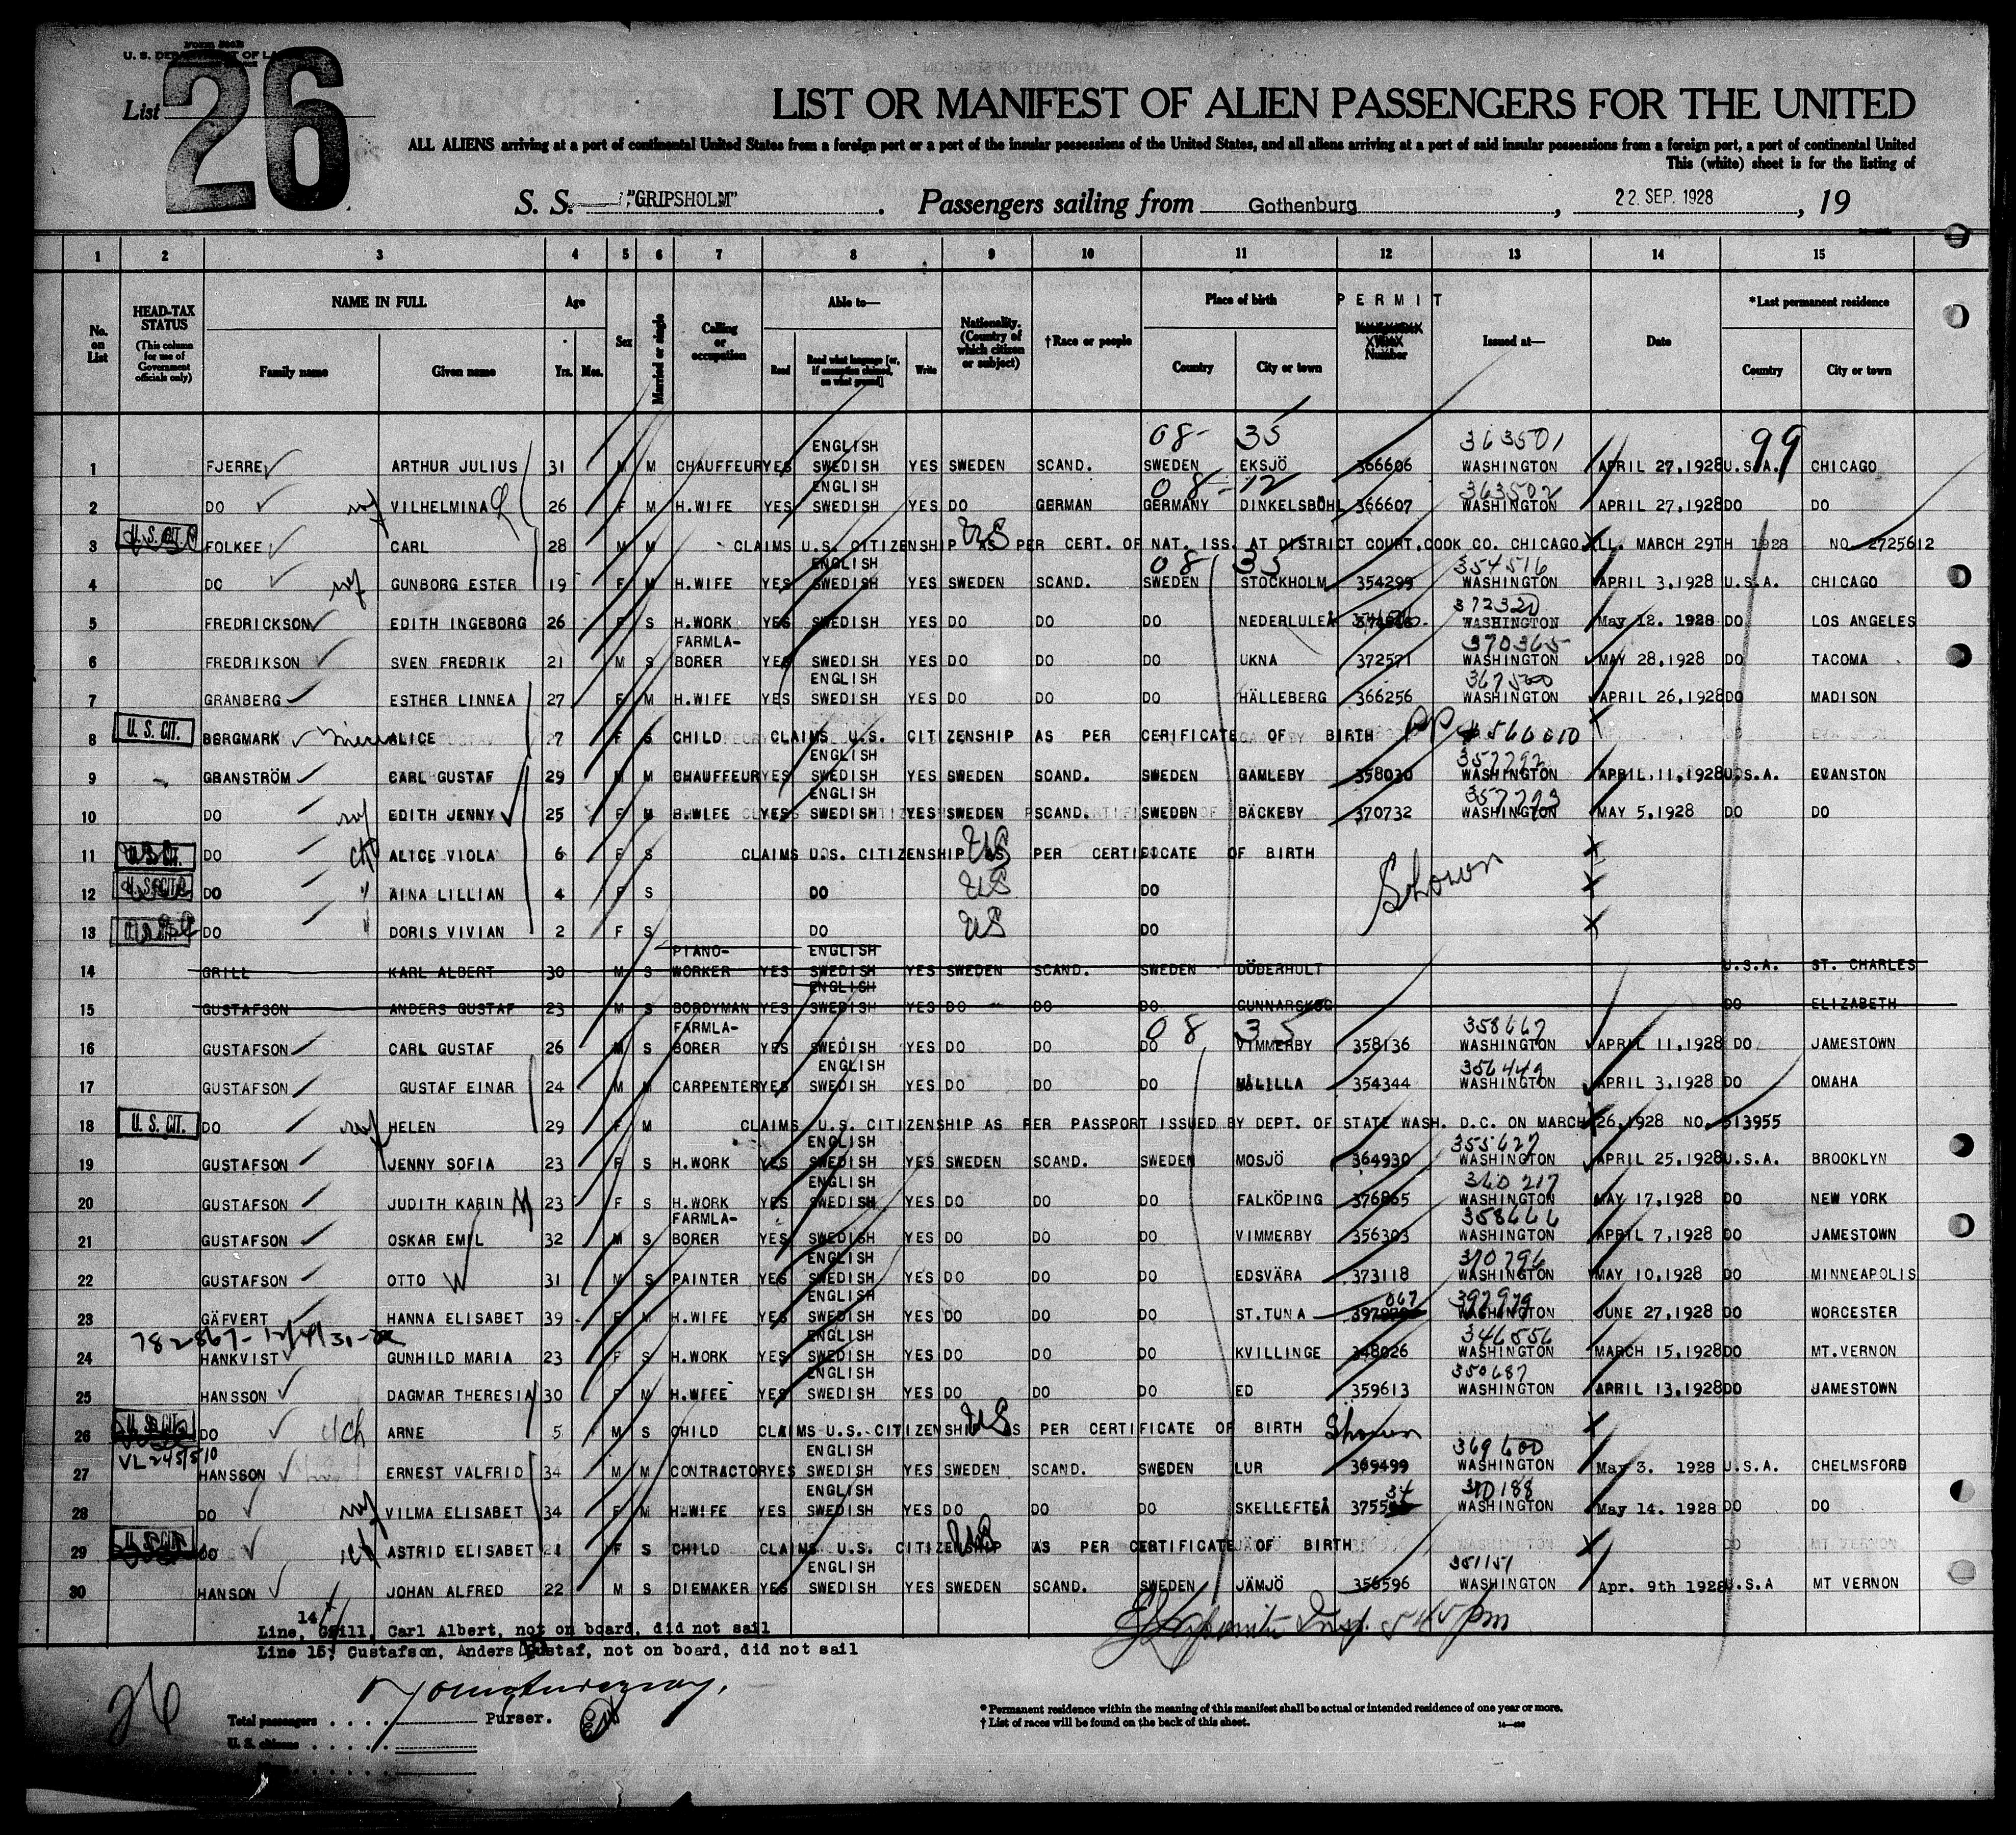 Form 500B
U. S. DEPARTMENT OF LA
List 26
LIST OR MANIFEST OF ALIEN PASSENGERS FOR THE UNITED
ALL ALIENS arriving at a port of continental United States from a foreign port or a port of the insular possessions of the United States, and all aliens arriving at a port of said insular possessions from a foreign port, a port of continental United
This (white) sheet is for the listing of
S. S. "GRIPSHOLM" . Passengers sailing from Gothenburg , 22 SEP. 1928 , 19
1 2 3 4 5 6 7 8 9 10 11 12 13 14 15
No. on List
HEAD-TAX STATUS (This column for use of Government officials only)
NAME IN FULL
Family name Given name
Age Yrs. Mos.
Sex
Married or single
Calling or occupation
Able to—
Read Read what language [or, if exemption claimed, on what ground] Write
Nationality. (Country of which citizen or subject)
†Race or people
Place of birth
Country City or town
PERMIT
Number
Issued at—
Date
*Last permanent residence
Country City or town
08- 35 363501 99
ENGLISH
1 FJERRE ARTHUR JULIUS 31 M M CHAUFFEUR YES SWEDISH YES SWEDEN SCAND. SWEDEN EKSJÖ 366606 WASHINGTON APRIL 27,1928 U.S.A. CHICAGO
ENGLISH 08-12 363502
2 DO wf VILHELMINA 26 F M H.WIFE YES SWEDISH YES DO GERMAN GERMANY DINKELSBÜHL 366607 WASHINGTON APRIL 27,1928 DO DO
3 U.S. CIT. FOLKEE CARL 28 M M CLAIMS U.S. CITIZENSHIP AS PER CERT. OF NAT. ISS. AT DISTRICT COURT,COOK CO. CHICAGO ILL. MARCH 29TH 1928 NO 2725612
US
ENGLISH 08 35 354516
4 DO wf GUNBORG ESTER 19 F M H.WIFE YES SWEDISH YES SWEDEN SCAND. SWEDEN STOCKHOLM 354299 WASHINGTON APRIL 3,1928 U.S.A. CHICAGO
372320
5 FREDRICKSON EDITH INGEBORG 26 F S H.WORK YES SWEDISH YES DO DO DO NEDERLULEÅ WASHINGTON May 12. 1928 DO LOS ANGELES
FARMLA- 370365
6 FREDRIKSON SVEN FREDRIK 21 M S BORER YES SWEDISH YES DO DO DO UKNA 372571 WASHINGTON MAY 28,1928 DO TACOMA
ENGLISH 367500
7 GRANBERG ESTHER LINNEA 27 F M H.WIFE YES SWEDISH YES DO DO DO HÄLLEBERG 366256 WASHINGTON APRIL 26,1928 DO MADISON
8 U. S. CIT. BERGMARK niece ALICE 27 F S CHILD CLAIMS U.S. CITIZENSHIP AS PER CERIFICATE OF BIRTH PP # 566010
ENGLISH 357292
9 GRANSTRÖM CARL GUSTAF 29 M M CHAUFFEUR YES SWEDISH YES SWEDEN SCAND. SWEDEN GAMLEBY 358030 WASHINGTON APRIL.11,1928 U.S.A. EVANSTON
ENGLISH 357293
10 DO wf EDITH JENNY 25 F M H.WIFE YES SWEDISH YES SWEDEN SCAND. SWEDEN BÄCKEBY 370732 WASHINGTON MAY 5,1928 DO DO
11 U.S. CIT. DO ch ALICE VIOLA 6 F S CLAIMS U.S. CITIZENSHIP AS PER CERTIFICATE OF BIRTH
US
12 U.S. CIT. DO " AINA LILLIAN 4 F S DO US DO Shown
13 DO " DORIS VIVIAN 2 F S DO US DO
PIANO- ENGLISH
14 GRILL KARL ALBERT 30 M S WORKER YES SWEDISH YES SWEDEN SCAND. SWEDEN DÖDERHULT U.S.A. ST. CHARLES
ENGLISH
15 GUSTAFSON ANDERS GUSTAF 23 M S BORDYMAN YES SWEDISH YES DO DO DO GUNNARSKOG DO ELIZABETH
FARMLA- 08 35 358667
16 GUSTAFSON CARL GUSTAF 26 M S BORER YES SWEDISH YES DO DO DO VIMMERBY 358136 WASHINGTON APRIL 11,1928 DO JAMESTOWN
ENGLISH 356449
17 GUSTAFSON GUSTAF EINAR 24 M M CARPENTER YES SWEDISH YES DO DO DO MÅLILLA 354344 WASHINGTON APRIL 3,1928 DO OMAHA
18 U. S. CIT. DO wf HELEN 29 F M CLAIMS U.S. CITIZENSHIP AS PER PASSPORT ISSUED BY DEPT. OF STATE WASH. D.C. ON MARCH 26,1928 NO. 513955
ENGLISH 355627
19 GUSTAFSON JENNY SOFIA 23 F S H.WORK YES SWEDISH YES SWEDEN SCAND. SWEDEN MOSJÖ 364930 WASHINGTON APRIL 25,1928 U.S.A. BROOKLYN
ENGLISH 340217
20 GUSTAFSON JUDITH KARIN 23 F S H.WORK YES SWEDISH YES DO DO DO FALKÖPING 376865 WASHINGTON MAY 17,1928 DO NEW YORK
FARMLA- 358666
21 GUSTAFSON OSKAR EMIL 32 M S BORER YES SWEDISH YES DO DO DO VIMMERBY 356303 WASHINGTON APRIL 7,1928 DO JAMESTOWN
ENGLISH 370796
22 GUSTAFSON OTTO 31 M S PAINTER YES SWEDISH YES DO DO DO EDSVÄRA 373118 WASHINGTON MAY 10,1928 DO MINNEAPOLIS
ENGLISH 067 397979
23 GÄFVERT HANNA ELISABET 39 F M H.WIFE YES SWEDISH YES DO DO DO ST.TUNA WASHINGTON JUNE 27,1928 DO WORCESTER
782867-12/4/31 ENGLISH 346556
24 HANKVIST GUNHILD MARIA 23 F S H.WORK YES SWEDISH YES DO DO DO KVILLINGE 348026 WASHINGTON MARCH 15,1928 DO MT.VERNON
ENGLISH 350687
25 HANSSON DAGMAR THERESIA 30 F M H.WIFE YES SWEDISH YES DO DO DO ED 359613 WASHINGTON APRIL 13,1928 DO JAMESTOWN
26 U.S. CIT. DO ch ARNE 5 M S CHILD CLAIMS U.S. CITIZENSHIP AS PER CERTIFICATE OF BIRTH Shown
US
VL 245510 ENGLISH 369600
27 HANSSON ERNEST VALFRID 34 M M CONTRACTOR YES SWEDISH YES SWEDEN SCAND. SWEDEN LUR 369499 WASHINGTON May 3. 1928 U.S.A. CHELMSFORD
ENGLISH 34 370188
28 DO wf VILMA ELISABET 34 F M H.WIFE YES SWEDISH YES DO DO DO SKELLEFTEÅ 3755 WASHINGTON May 14. 1928 DO DO
29 U.S. CIT. DO ch ASTRID ELISABET F S CHILD CLAIMS U.S. CITIZENSHIP AS PER CERTIFICATE OF BIRTH
US
ENGLISH 351151
30 HANSON JOHAN ALFRED 22 M S DIEMAKER YES SWEDISH YES SWEDEN SCAND. SWEDEN JÄMJÖ 356596 WASHINGTON Apr. 9th 1928 U.S.A MT VERNON
14
Line, Grill, Carl Albert, not on board, did not sail
Line 15; Gustafson, Anders Gustaf, not on board, did not sail
Insp. 5 45 pm
26
Total passengers . . . . Purser.
U. S. citizens . . . . .
* Permanent residence within the meaning of this manifest shall be actual or intended residence of one year or more.
† List of races will be found on the back of this sheet.